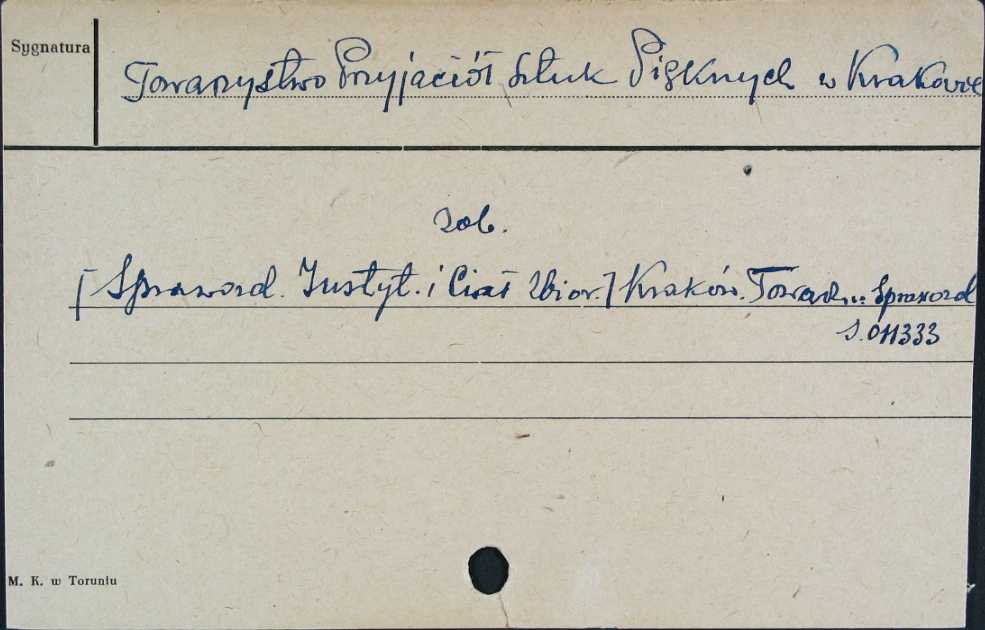 Sygnatura
Towarzystwo Przyjaciół Sztuk Pięknych w Krakowie
zob.
[Sprawozd. Instyt. i Ciał Zbior.] Kraków. Towarz... Sprawozd
S.011333
M. K. w Toruniu